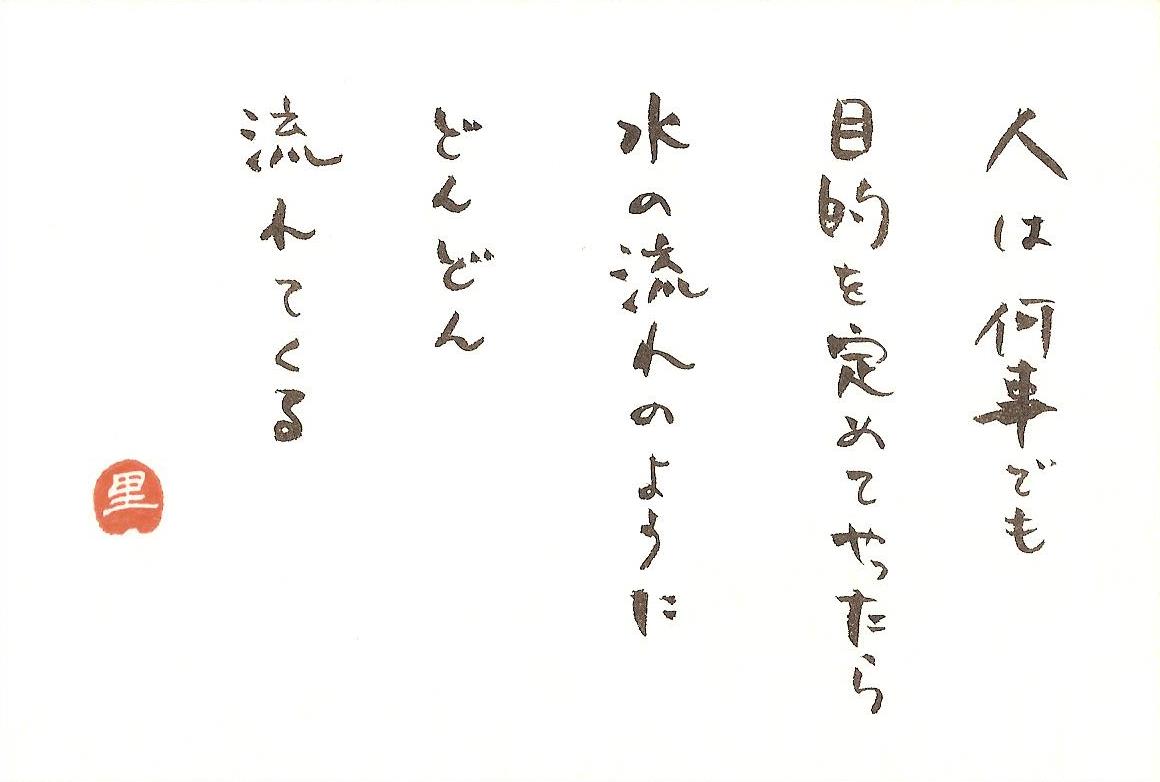 人は何事でも
目的を定めてやったら
水の流れのように
どんどん
流れてくる
里